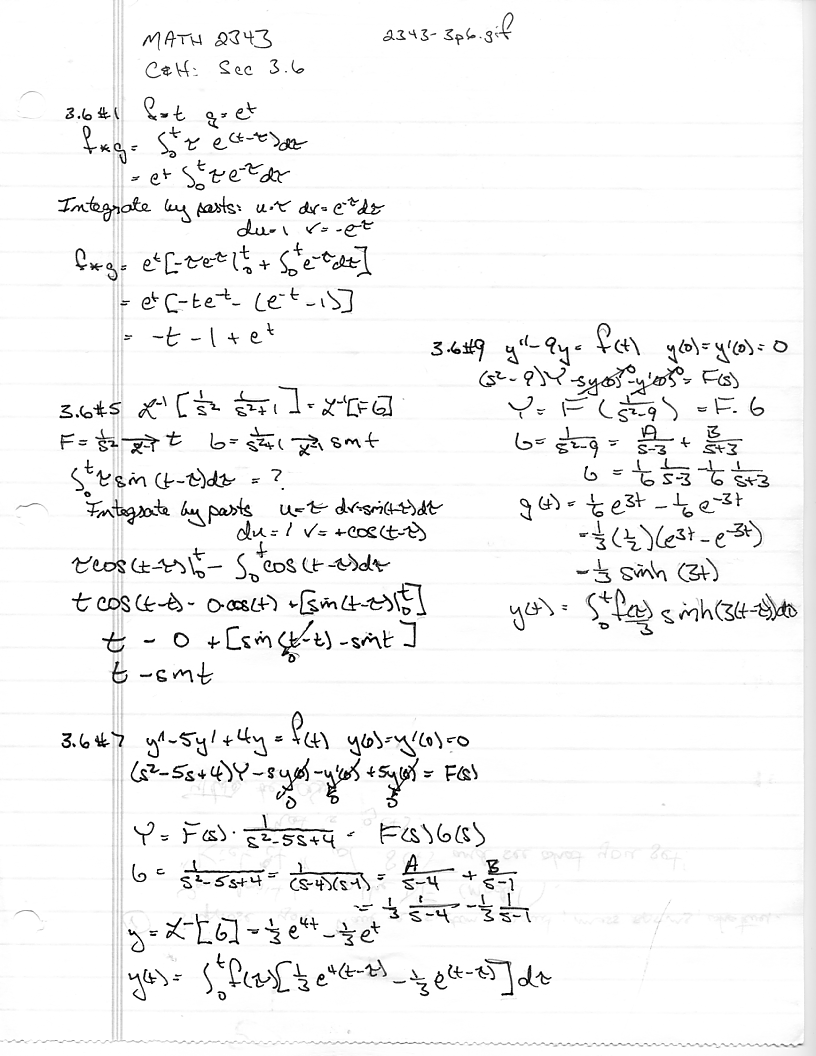 MATH 2343 2343-3p6.gif
C&H: Sec 3.6
3.6 #1 f=t g=e^t
f*g = ∫₀^t τ e^(t-τ) dτ
= e^t ∫₀^t τ e^-τ dτ
Integrate by parts: u=τ dv=e^-τ dτ
du=1 v=-e^-τ
f*g = e^t [-τe^-τ |₀^t + ∫₀^t e^-τ dτ]
= e^t [-te^-t - (e^-t - 1)]
= -t - 1 + e^t
3.6 #5 ℒ⁻¹ [1/s² 1/(s²+1)] = ℒ⁻¹[FG]
F = 1/s² →ℒ⁻¹ t G = 1/(s²+1) →ℒ⁻¹ sin t
∫₀^t τ sin(t-τ) dτ = ?
Integrate by parts u=τ dv=sin(t-τ)dτ
du=1 v=+cos(t-τ)
τ cos(t-τ)|₀^t - ∫₀^t cos(t-τ) dτ
t cos(t-t) - 0·cos(t) + [sin(t-τ)|₀^t]
t - 0 + [sin(t-t) - sin t]
0
t - sin t
3.6 #9 y'' - 9y = f(t) y(0) = y'(0) = 0
(s²-9)Y - sy(0)⁰ - y'(0)⁰ = F(s)
Y = F (1/(s²-9)) = F·G
G = 1/(s²-9) = A/(s-3) + B/(s+3)
G = 1/6 1/(s-3) - 1/6 1/(s+3)
g(t) = 1/6 e^3t - 1/6 e^-3t
= 1/3 (1/2)(e^3t - e^-3t)
= 1/3 sinh (3t)
y(t) = ∫₀^t f(τ)/3 sinh(3(t-τ)) dτ
3.6 #7 y'' - 5y' + 4y = f(t) y(0)=y'(0)=0
(s²-5s+4)Y - sy(0) - y'(0) + 5y(0) = F(s)
0 0 0
Y = F(s) · 1/(s²-5s+4) = F(s)G(s)
G = 1/(s²-5s+4) = 1/((s-4)(s-1)) = A/(s-4) + B/(s-1)
= 1/3 1/(s-4) - 1/3 1/(s-1)
y = ℒ⁻¹[G] = 1/3 e^4t - 1/3 e^t
y(t) = ∫₀^t f(τ)[1/3 e^4(t-τ) - 1/3 e^(t-τ)] dτ